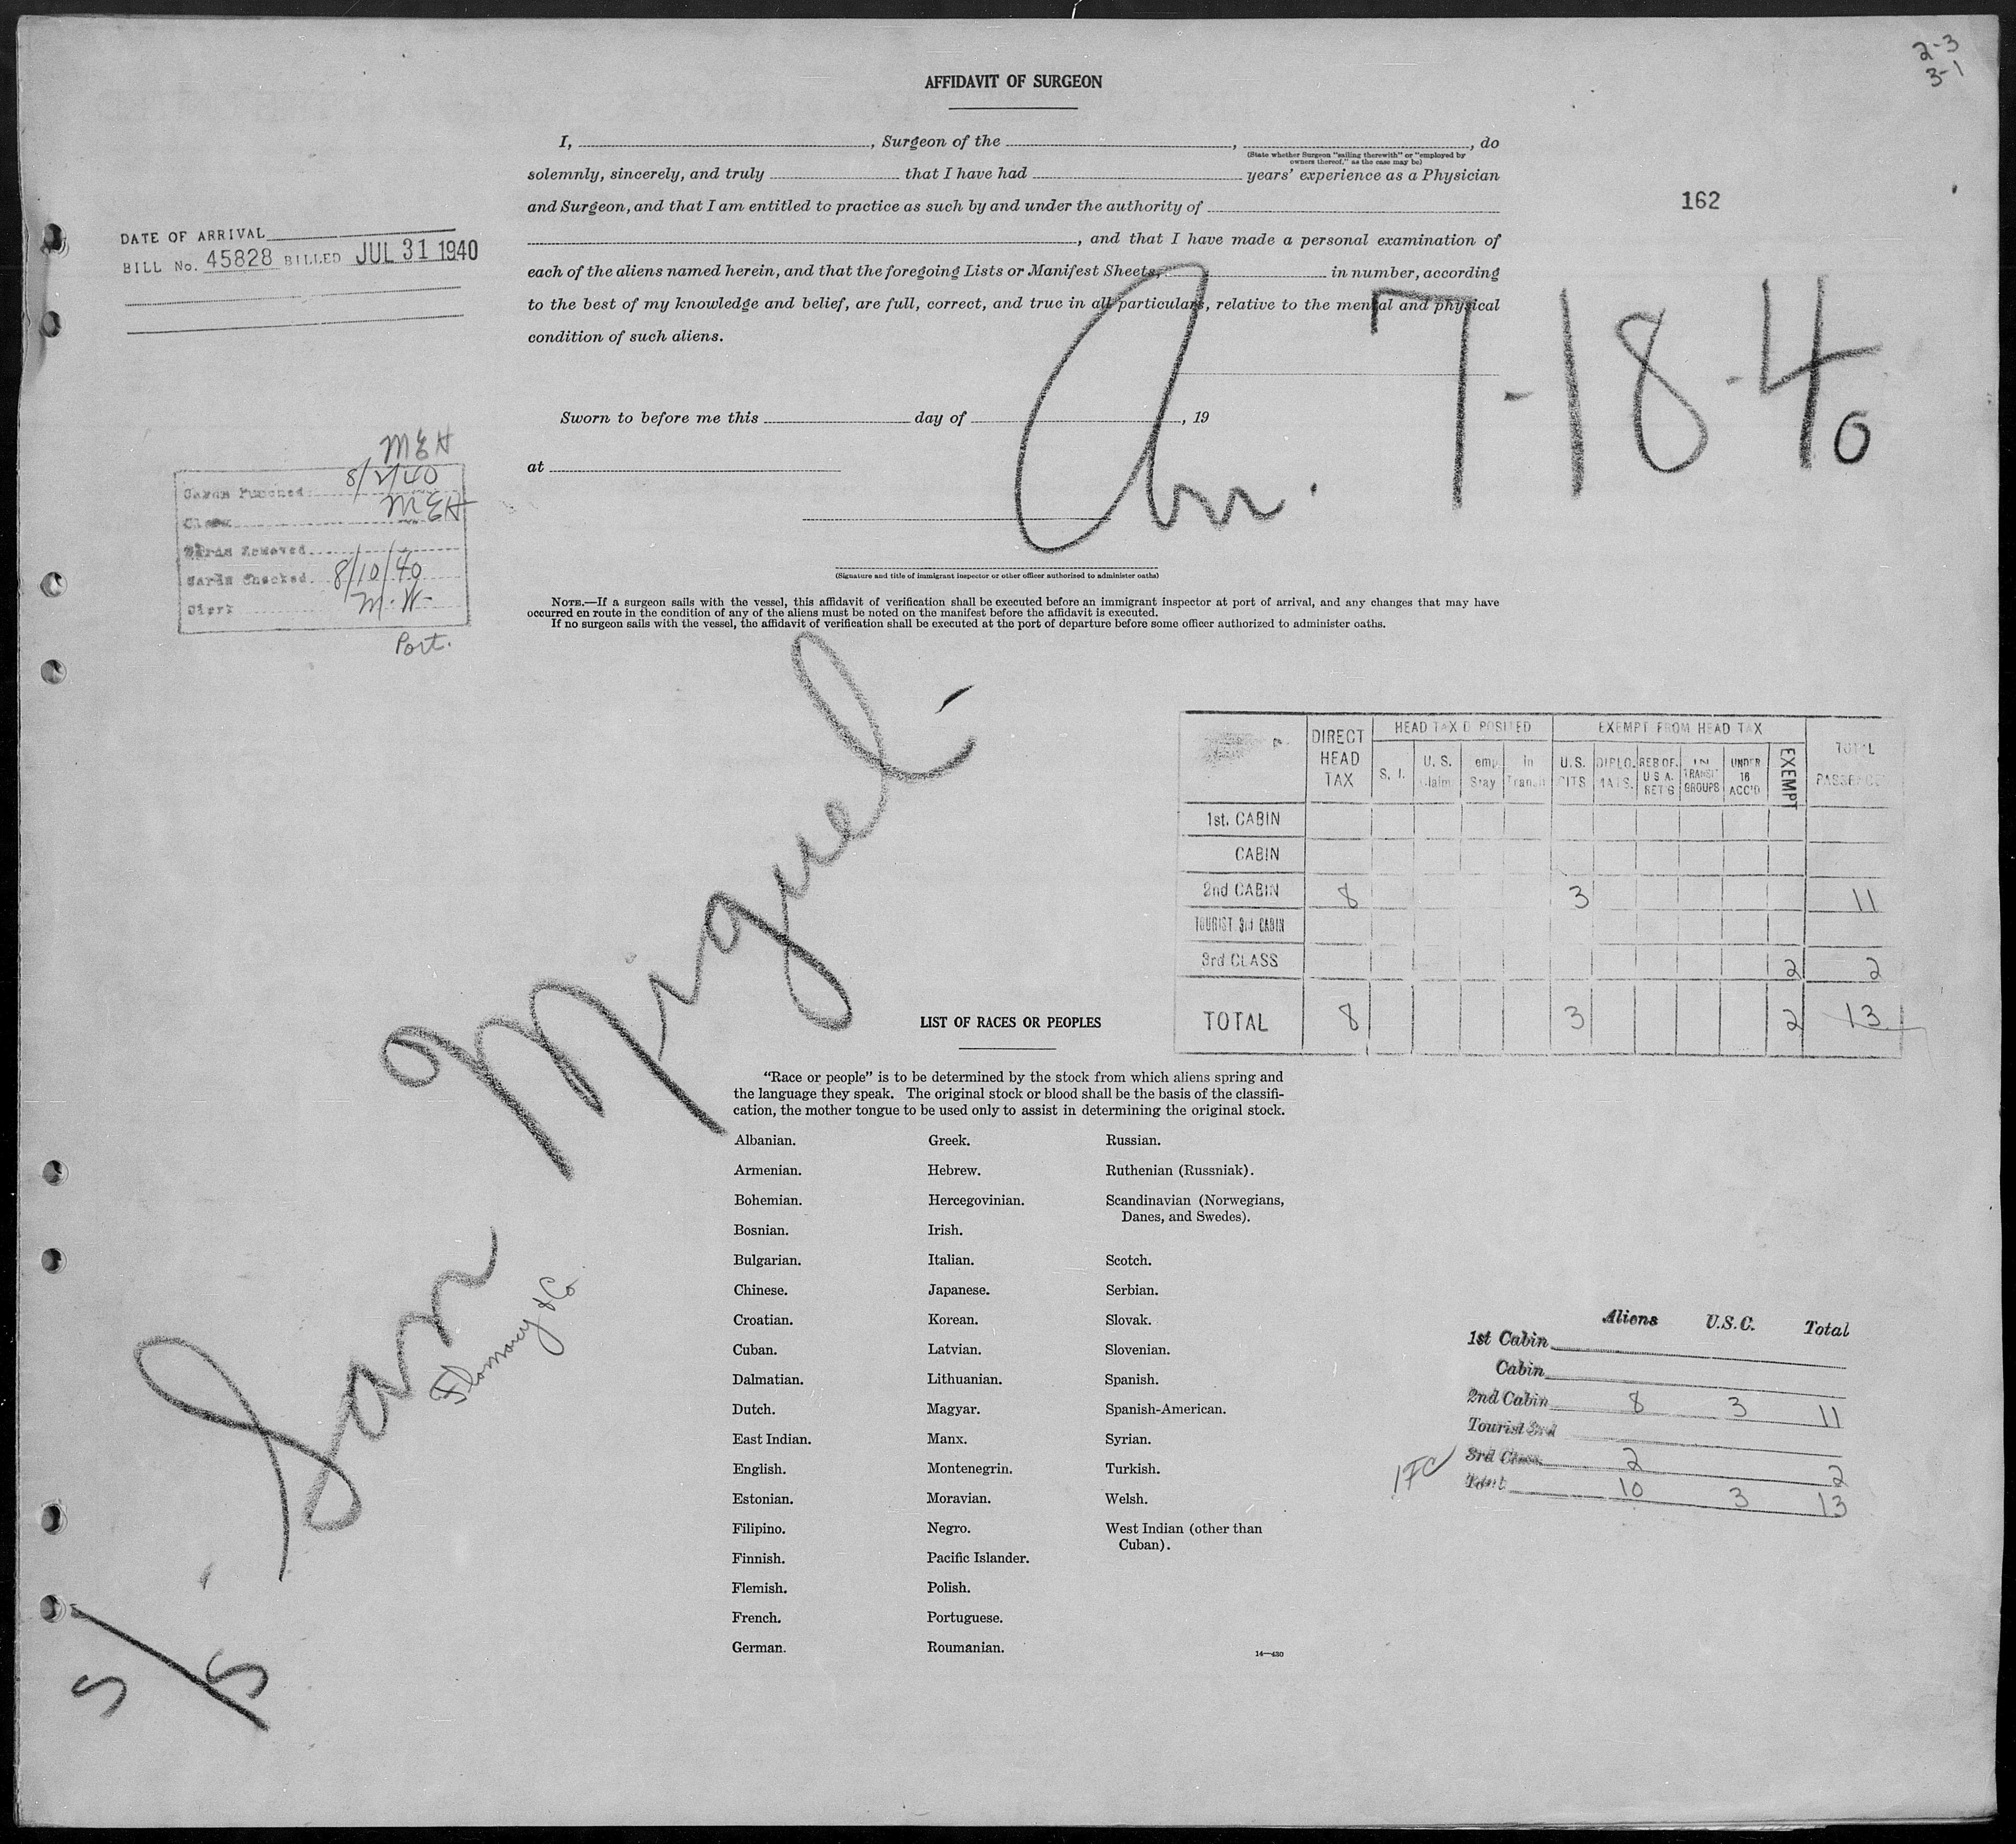 2-3
3-1
AFFIDAVIT OF SURGEON
I, , Surgeon of the , , do
(State whether Surgeon "sailing therewith" or "employed by
owners thereof," as the case may be)
solemnly, sincerely, and truly that I have had years' experience as a Physician
and Surgeon, and that I am entitled to practice as such by and under the authority of
, and that I have made a personal examination of
each of the aliens named herein, and that the foregoing Lists or Manifest Sheets, in number, according
to the best of my knowledge and belief, are full, correct, and true in all particulars, relative to the mental and physical
condition of such aliens.
162
DATE OF ARRIVAL
BILL No. 45828 BILLED JUL 31 1940
Arr. 7-18-40
Sworn to before me this day of , 19
at
(Signature and title of immigrant inspector or other officer authorized to administer oaths)
MEH
Cards Punched 8/2/40
Clerk MEH
Cards Removed
Cards Checked 8/10/40
Clerk M.W.
Port.
NOTE.—If a surgeon sails with the vessel, this affidavit of verification shall be executed before an immigrant inspector at port of arrival, and any changes that may have
occurred en route in the condition of any of the aliens must be noted on the manifest before the affidavit is executed.
If no surgeon sails with the vessel, the affidavit of verification shall be executed at the port of departure before some officer authorized to administer oaths.
S/S San Miguel
DIRECT HEAD TAX
HEAD TAX DEPOSITED
S. I.
U. S. Claim
Temp Stay
In Transit
EXEMPT FROM HEAD TAX
U.S. CITS
DIPLO. MATS.
REB OF. U S A. RET'S
IN TRANSIT GROUPS
UNDER 16 ACC'D
EXEMPT
TOTAL PASSENG
1st. CABIN
CABIN
2nd CABIN 8 3 11
TOURIST 3rd CABIN
3rd CLASS 2 2
TOTAL 8 3 2 13
LIST OF RACES OR PEOPLES
"Race or people" is to be determined by the stock from which aliens spring and
the language they speak. The original stock or blood shall be the basis of the classifi-
cation, the mother tongue to be used only to assist in determining the original stock.
Albanian.
Armenian.
Bohemian.
Bosnian.
Bulgarian.
Chinese.
Croatian.
Cuban.
Dalmatian.
Dutch.
East Indian.
English.
Estonian.
Filipino.
Finnish.
Flemish.
French.
German.
Greek.
Hebrew.
Hercegovinian.
Irish.
Italian.
Japanese.
Korean.
Latvian.
Lithuanian.
Magyar.
Manx.
Montenegrin.
Moravian.
Negro.
Pacific Islander.
Polish.
Portuguese.
Roumanian.
Russian.
Ruthenian (Russniak).
Scandinavian (Norwegians,
Danes, and Swedes).
Scotch.
Serbian.
Slovak.
Slovenian.
Spanish.
Spanish-American.
Syrian.
Turkish.
Welsh.
West Indian (other than
Cuban).
14—430
Aliens U.S.C. Total
1st Cabin
Cabin
2nd Cabin 8 3 11
Tourist 3rd
3rd Class 2 2
Total 10 3 13